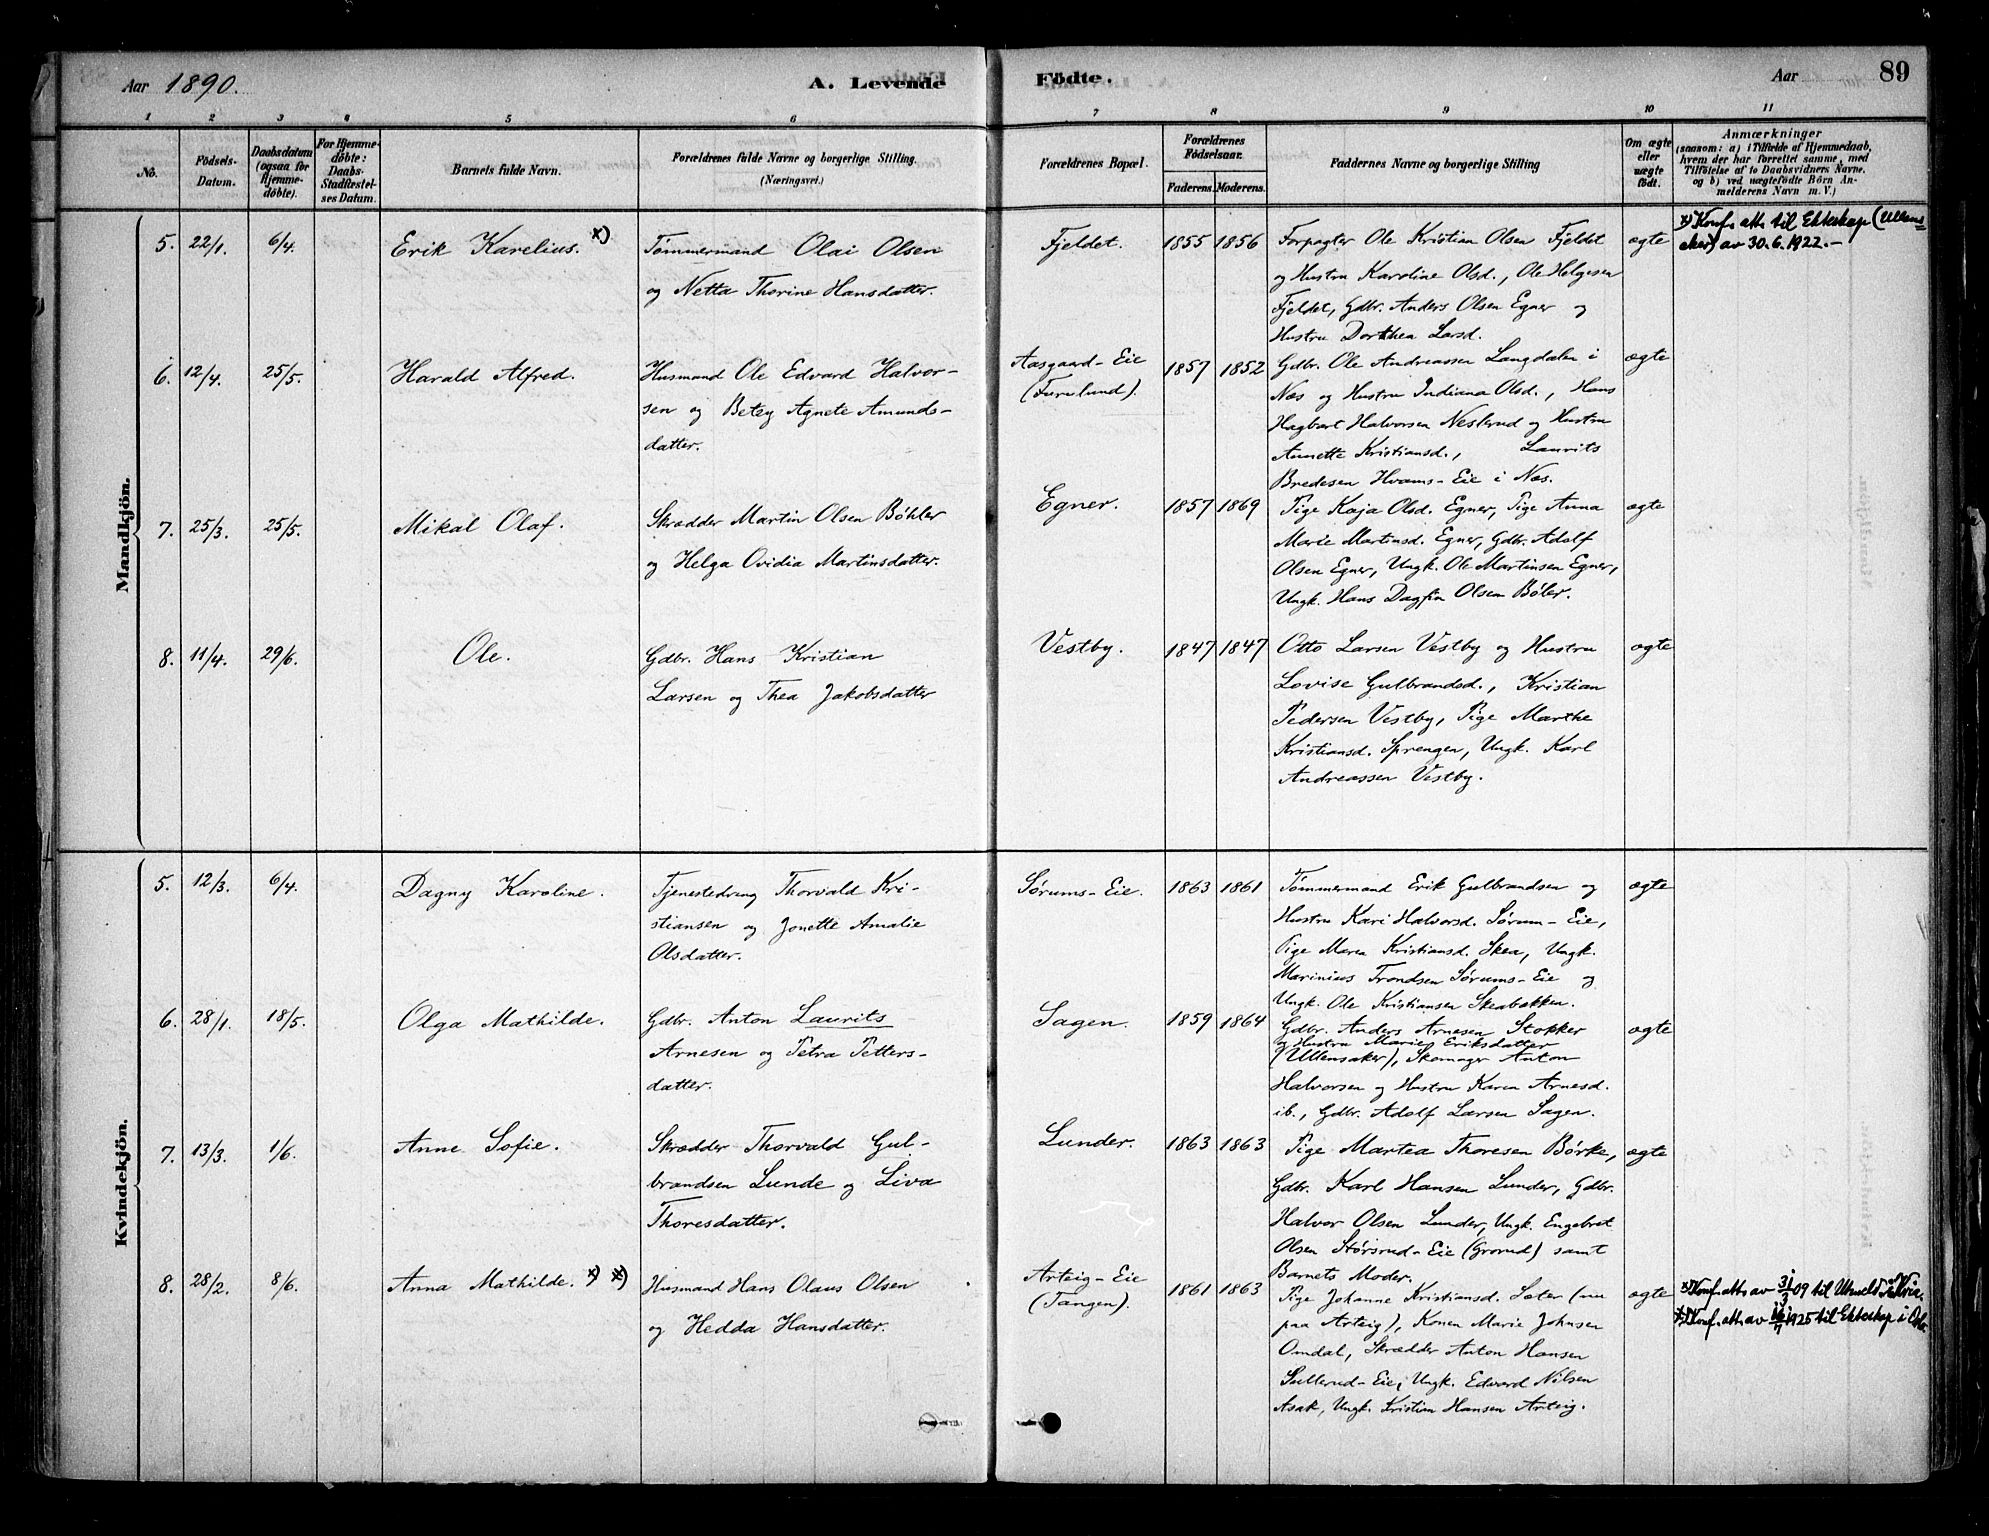 Aar 1890. A. Levende Födte. Aar 89
1 2 3 4 5 6 7 8 9 10 11
No.
Födsels-
Datum.
Daabsdatum
(ogsaa for
Hjemme-
döbte).
For Hjemme-
döbte:
Daabs-
Stadfæstel-
ses Datum.
Barnets fulde Navn.
Forældrenes fulde Navne og borgerlige Stilling.
(Næringsvei.)
Forældrenes Bopæl.
Forældrenes
Födselsaar.
Faderens. Moderens.
Faddernes Navne og borgerlige Stilling
Om ægte
eller
uægte
födt.
Anmærkninger
(saasom: a) i Tilfælde af Hjemmedaab,
hvem der har forrettet samme, med
Tilföielse af to Daabsvidners Navne,
og b) ved uægtefödte Börn An-
melderens Navn m. V.)
Mandkjön.
5. 22/1. 6/4. Erik Karelius. x)
Tømmermand Olai Olsen
og Netta Thorine Hansdatter.
Fjeldet. 1855 1856
Forpagter Ole Kristian Olsen Fjeldet
og Hustru Karoline Olsd., Ole Helgesen
Fjeldet, Gdbr. Anders Olsen Egner og
Hustru Dorthea Larsd.
ægte
x) Konf. att. til Ekteskap (Ullens-
aker) av 30.6.1922.-
6. 12/4. 25/5. Harald Alfred.
Husmand Ole Edvard Halvor-
sen og Betzy Agnete Amunds-
datter.
Aasgaard-Eie
(Furulund).
1857 1852
Gdbr. Ole Andreassen Langdalen i
Næs og Hustru Indiana Olsd., Hans
Hagbart Halvorsen Neslerud og Hustru
Annette Kristiansd., Laurits
Bredesen Hvams-Eie i Næs.
ægte
7. 25/3. 25/5. Mikal Olaf.
Skrædder Martin Olsen Bøhler
og Helga Ovidia Martinsdatter.
Egner. 1857 1869
Pige Kaja Olsd. Egner, Pige Anna
Marie Martinsd. Egner, Gdbr. Adolf
Olsen Egner, Ungk. Ole Martinsen Egner,
Ungk. Hans Dagfin Olsen Bøler.
ægte
8. 11/4. 29/6. Ole.
Gdbr. Hans Kristian
Larsen og Thea Jakobsdatter
Vestby. 1847 1847
Otto Larsen Vestby og Hustru
Lovise Gulbrandsd., Kristian
Pedersen Vestby, Pige Marthe
Kristiansd. Sprengen, Ungk. Karl
Andreassen Vestby.
ægte
Kvindekjön.
5. 12/3. 6/4. Dagny Karoline.
Tjenestedreng Thorvald Kri-
stiansen og Jonette Amalie
Olsdatter.
Sørums-Eie. 1863 1861
Tømmermand Erik Gulbrandsen og
Hustru Kari Halvorsd. Sørum-Eie,
Pige Maren Kristiansd. Skea, Ungk.
Marinius Trondsen Sørums-Eie og
Ungk. Ole Kristiansen Skeabakken.
ægte
6. 28/1. 18/5. Olga Mathilde.
Gdbr. Anton Laurits
Arnesen og Petra Petters-
datter.
Sagen. 1859 1864
Gdbr. Anders Arnesen Stokker
og Hustru Marie Eriksdatter
(Ullensaker), Skomager Anton
Halvorsen og Hustru Karen Arnesd.
ib., Gdbr. Adolf Larsen Sagen.
ægte
7. 13/3. 1/6. Anne Sofie.
Skrædder Thorvald Gul-
brandsen Lunde og Liva
Thoresdatter.
Lunder. 1863 1863
Pige Martea Thoresen Børke,
Gdbr. Karl Hansen Lunder, Gdbr.
Halvor Olsen Lunder, Ungk. Engebret
Olsen Størsrud-Eie (Grorud) samt
Barnets Moder.
ægte
8. 28/2. 8/6. Anna Mathilde. x) x)
Husmand Hans Olaus Olsen
og Hedda Hansdatter.
Arteig-Eie
(Tangen).
1861 1863
Pige Johanne Kristiansd. Sæter (nu
paa Arteig), Konen Marie Johnsen
Omdal, Skrædder Anton Hansen
Sullerud-Eie, Ungk. Edvard Nilsen
Asak, Ungk. Kristian Hansen Arteig.
ægte
x) Konf. att. av 09 til
x) Konf. att. av 1925 til Ekteskap i Oslo.